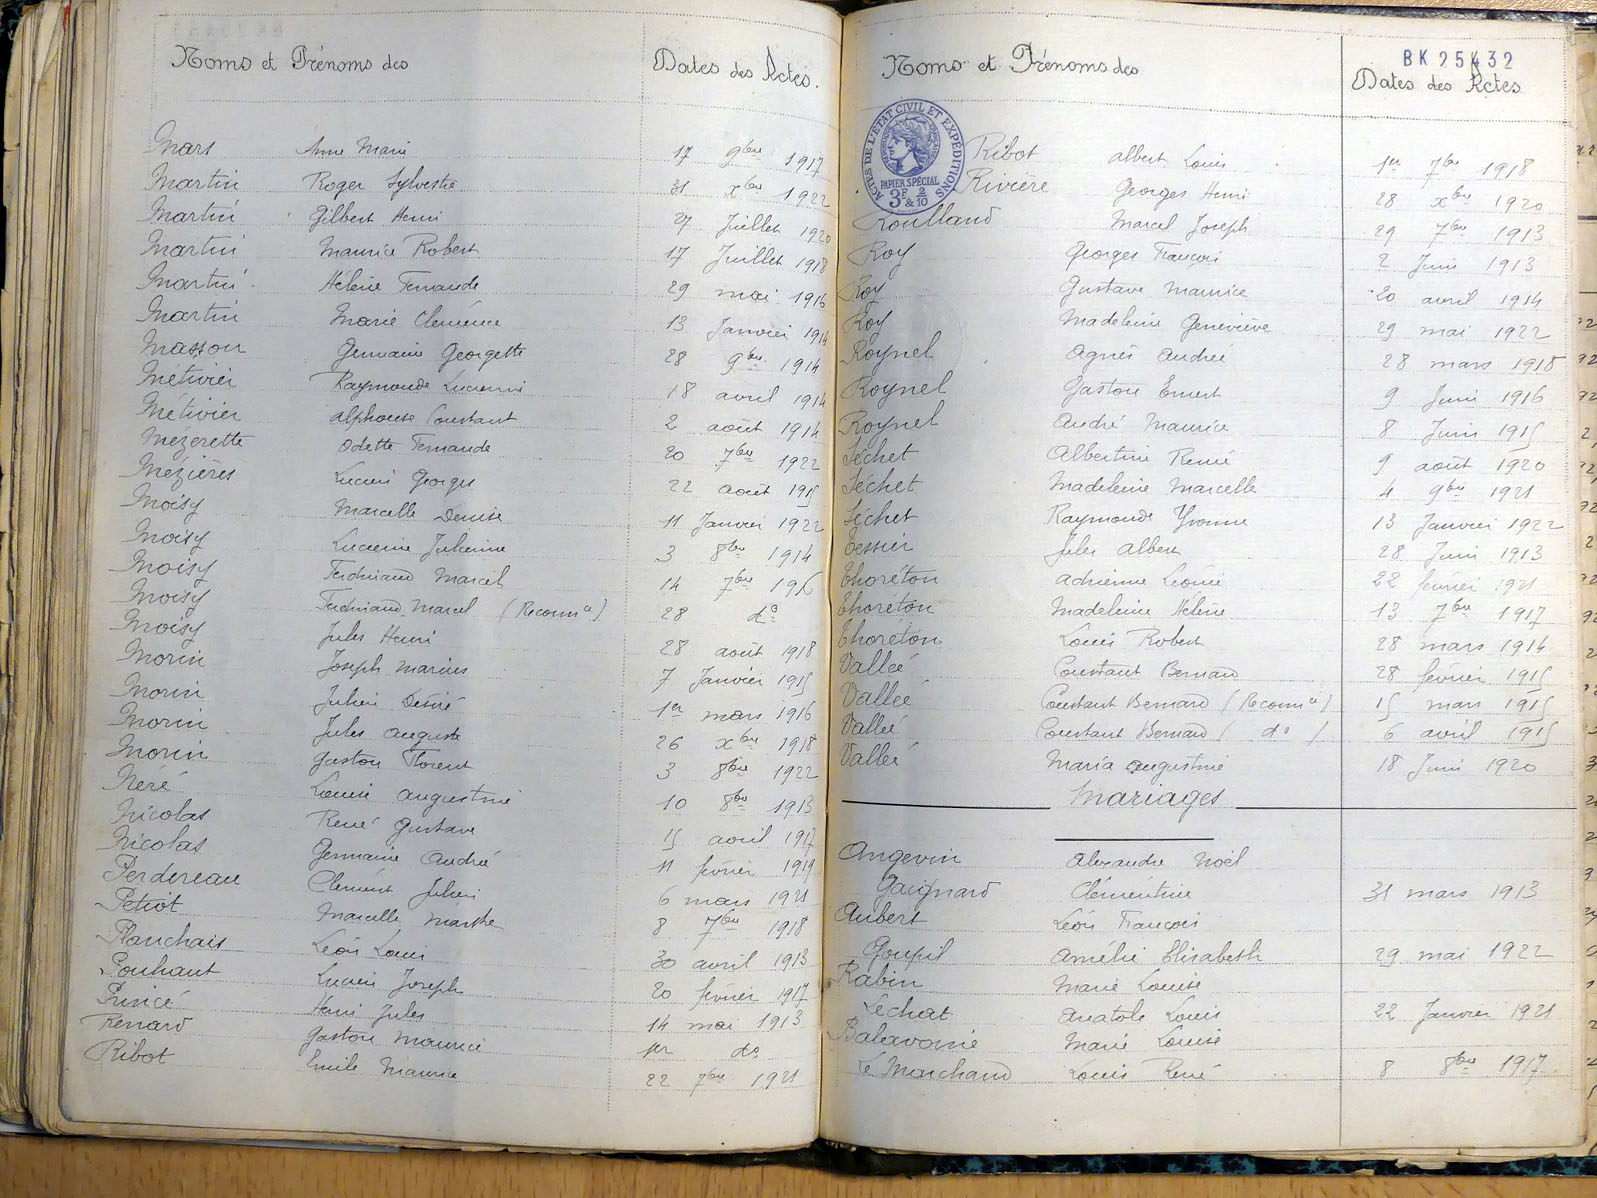 Noms et Prénoms des Dates des Actes.
Mars Anne Marie 17 9bre 1917
Martin Roger Sylvestre 31 xbre 1922
Martin Gilbert Henri 27 Juillet 1920
Martin Maurice Robert 17 Juillet 1918
Martin Hélène Fernande 29 mai 1916
Martin Marie Clémence 13 Janvier 1914
Masson Germaine Georgette 28 9bre 1914
Métivier Raymonde Lucienne 18 avril 1914
Métivier alphonse Constant 2 août 1914
Mézerette Odette Fernande 20 7bre 1922
Mézières Lucien Georges 22 août 1915
Moisy Marcelle Denise 11 Janvier 1922
Moisy Lucienne Julienne 3 8bre 1914
Moisy Ferdinand Marcel 14 7bre
Moisy Ferdinand Marcel (Reconnce) 28 do
Moisy Jules Henri 28 août 1918
Morin Joseph Marius 7 Janvier 1915
Morin Julien Désiré 1er mars 1916
Morin Jules auguste 26 xbre 1918
Morin Gaston Florent 3 8bre 1922
Néré Louise augustine 10 8bre 1913
Nicolas René Gustave 15 avril 1917
Nicolas Germaine André 11 février 1919
Perdereau Clément Julien 6 mars 1921
Petiot Marcelle Marthe 8 7bre 1918
Planchais Léon Louis 30 avril 1913
Pouhaut Lucien Joseph 20 février 1917
Princé Henri Jules 14 mai 1913
Renard Gaston Maurice 1er do
Ribot Emile Maurice 22 7bre 1921
BK 25432
Noms et Prénoms des Dates des Actes
ACTES DE L'ETAT CIVIL ET EXPÉDITIONS
PAPIER SPÉCIAL
3F & 2/10
Ribot albert Louis 1er 7bre 1918
Rivière Georges Henri 28 xbre 1920
Roulland Marcel Joseph 29 7bre 1913
Roy Georges François 2 Juin 1913
Roy Gustave Maurice 20 avril 1914
Roy Madeleine Geneviève 29 mai 1922
Roynel Agnès André 28 mars 1918
Roynel Gaston Ernest 9 Juin 1916
Roynel André Maurice 8 Juin 1915
Séchet Albertine René 9 août 1920
Séchet Madeleine Marcelle 4 9bre 1921
Séchet Raymonde Yvonne 13 Janvier 1922
Tessier Jules Albert 28 Juin 1913
Thoréton adrienne Léonie 22 février 1921
Thoréton Madeleine Hélène 13 7bre 1917
Thoréton Louis Robert 28 mars 1914
Vallée Constant Bernard 28 février 1915
Vallée Constant Bernard (Reconnce) 15 mars 1915
Vallée Constant Bernard ( do ) 6 avril 1915
Vallée Maria augustine 18 Juin 1920
Mariages
Angevin alexandre Noël
Gaignard Clémentine 31 mars 1913
Aubert Léon François
Goupil Amélie Elisabeth 29 mai 1922
Rabin Marie Louise
Léchat Anatole Louis 22 Janvier 1921
Balavoine Marie Louise
Le Marchand Louis René 8 8bre 1917